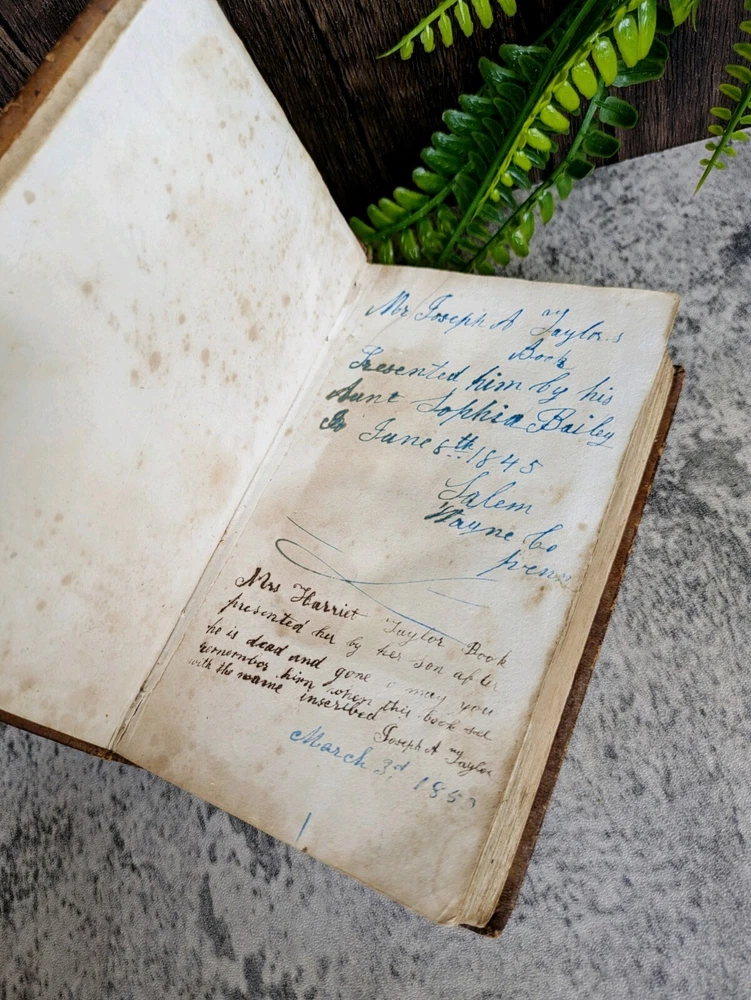 Mr Joseph A Taylors
Book
Presented him by his
Aunt Sophia Bailey
June 8th 1845
Salem
Wayne Co
penn
Mrs Harriet Taylor Book
presented her by her son after
he is dead and gone o may you
remember him when this book see
with the name inscribed
Joseph A Taylor
March 3d, 185